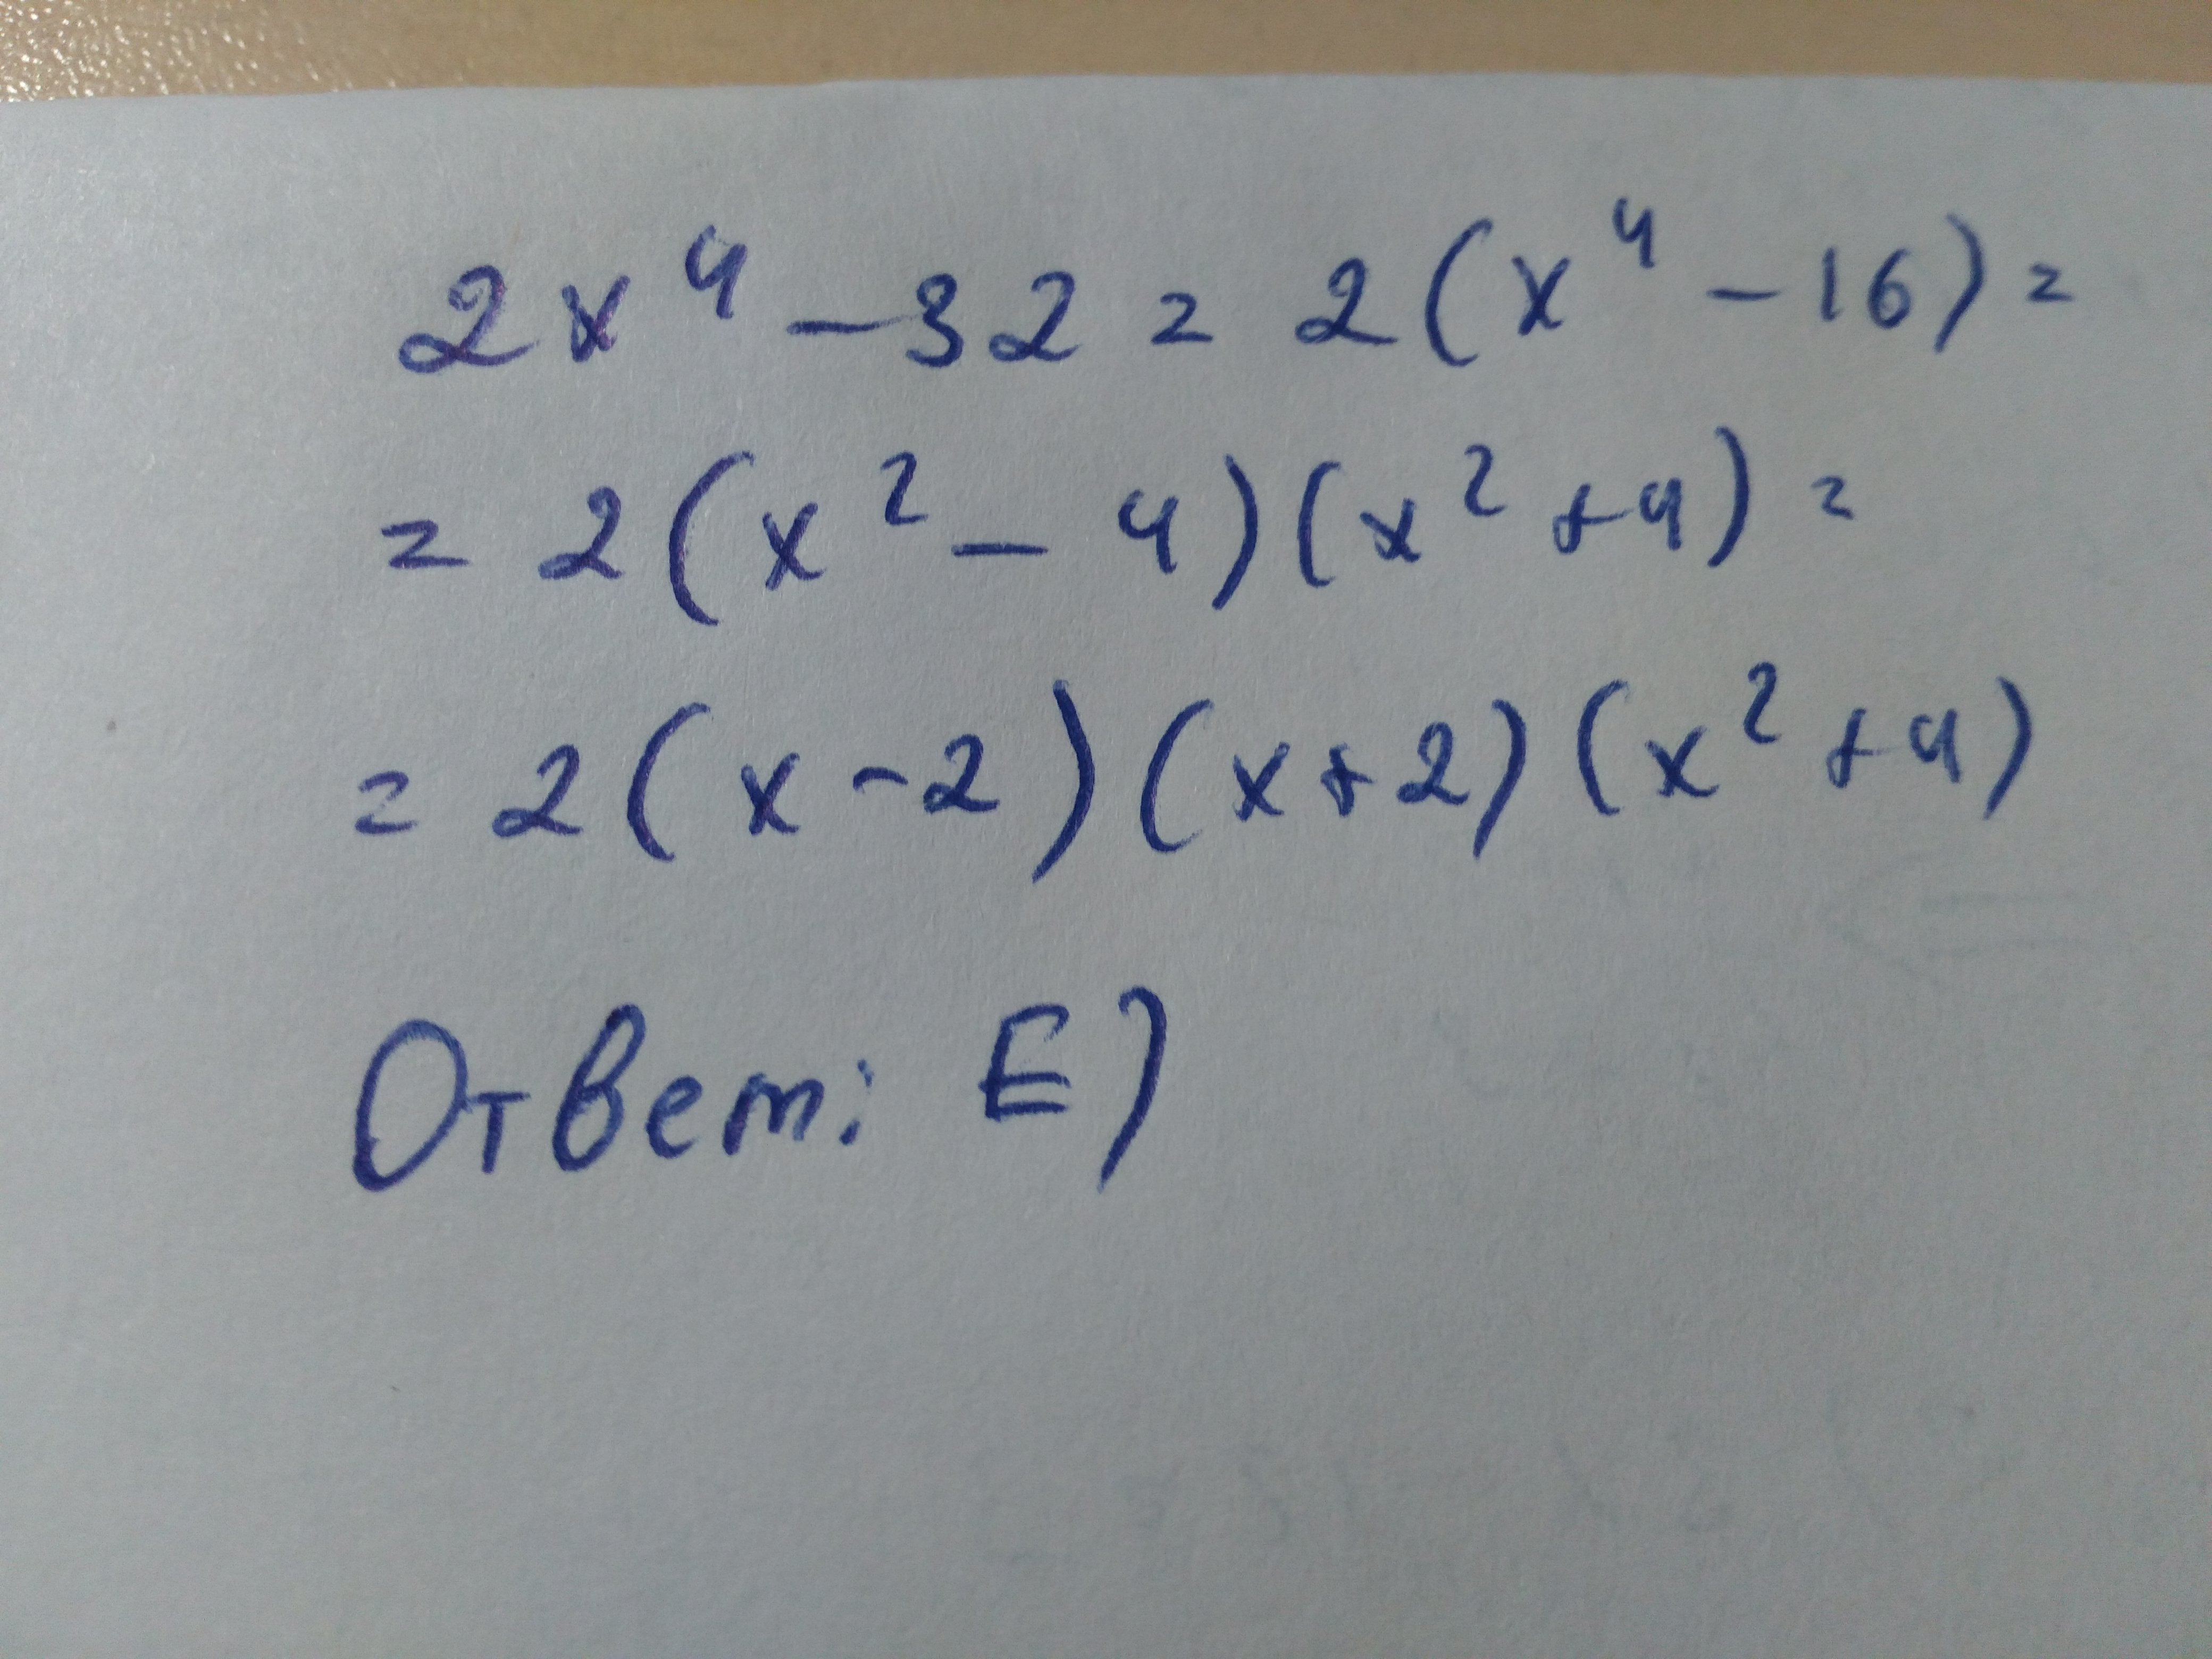 2x⁴ - 32 = 2(x⁴ - 16) =
= 2(x² - 4)(x² + 4) =
= 2(x - 2)(x + 2)(x² + 4)
Ответ: E)